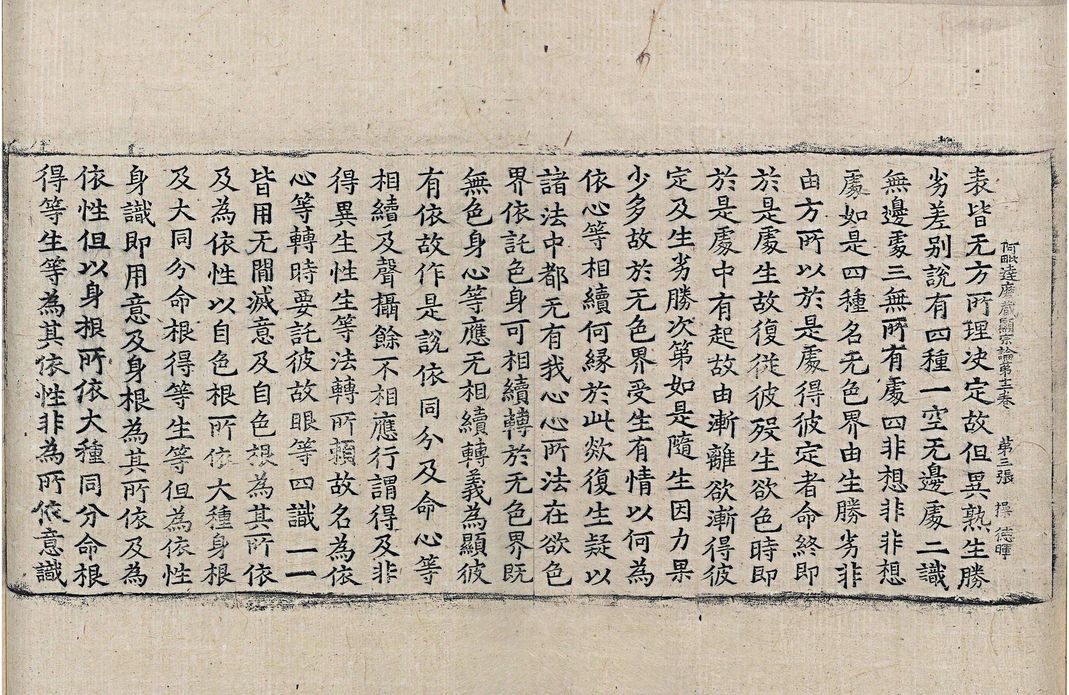 阿毗達磨藏顯宗論第十二卷 第三張 操 德暉
表皆无方所理決定故但異熟生勝
劣差别說有四種一空无邊處二識
無邊處三無所有處四非想非非想
處如是四種名无色界由生勝劣非
由方所以於是處得彼定者命終即
於是處生故復從彼殁生欲色時即
於是處中有起故由漸離欲漸得彼
定及生劣勝次第如是隨生因力果
少多故於无色界受生有情以何為
依心等相續何縁於此欻復生疑以
諸法中都无有我心心所法在欲色
界依託色身可相續轉於无色界既
無色身心等應无相續轉義為顯彼
有依故作是說依同分及命心等
相續及聲攝餘不相應行謂得及非
得異生性生等法轉所頼故名為依
心等轉時要託彼故眼等四識一一
皆用无閒滅意及自色根為其所依
及為依性以自色根所依大種身根
及大同分命根得等生等但為依性
身識即用意及身根為其所依及為
依性但以身根所依大種同分命根
得等生等為其依性非為所依意識